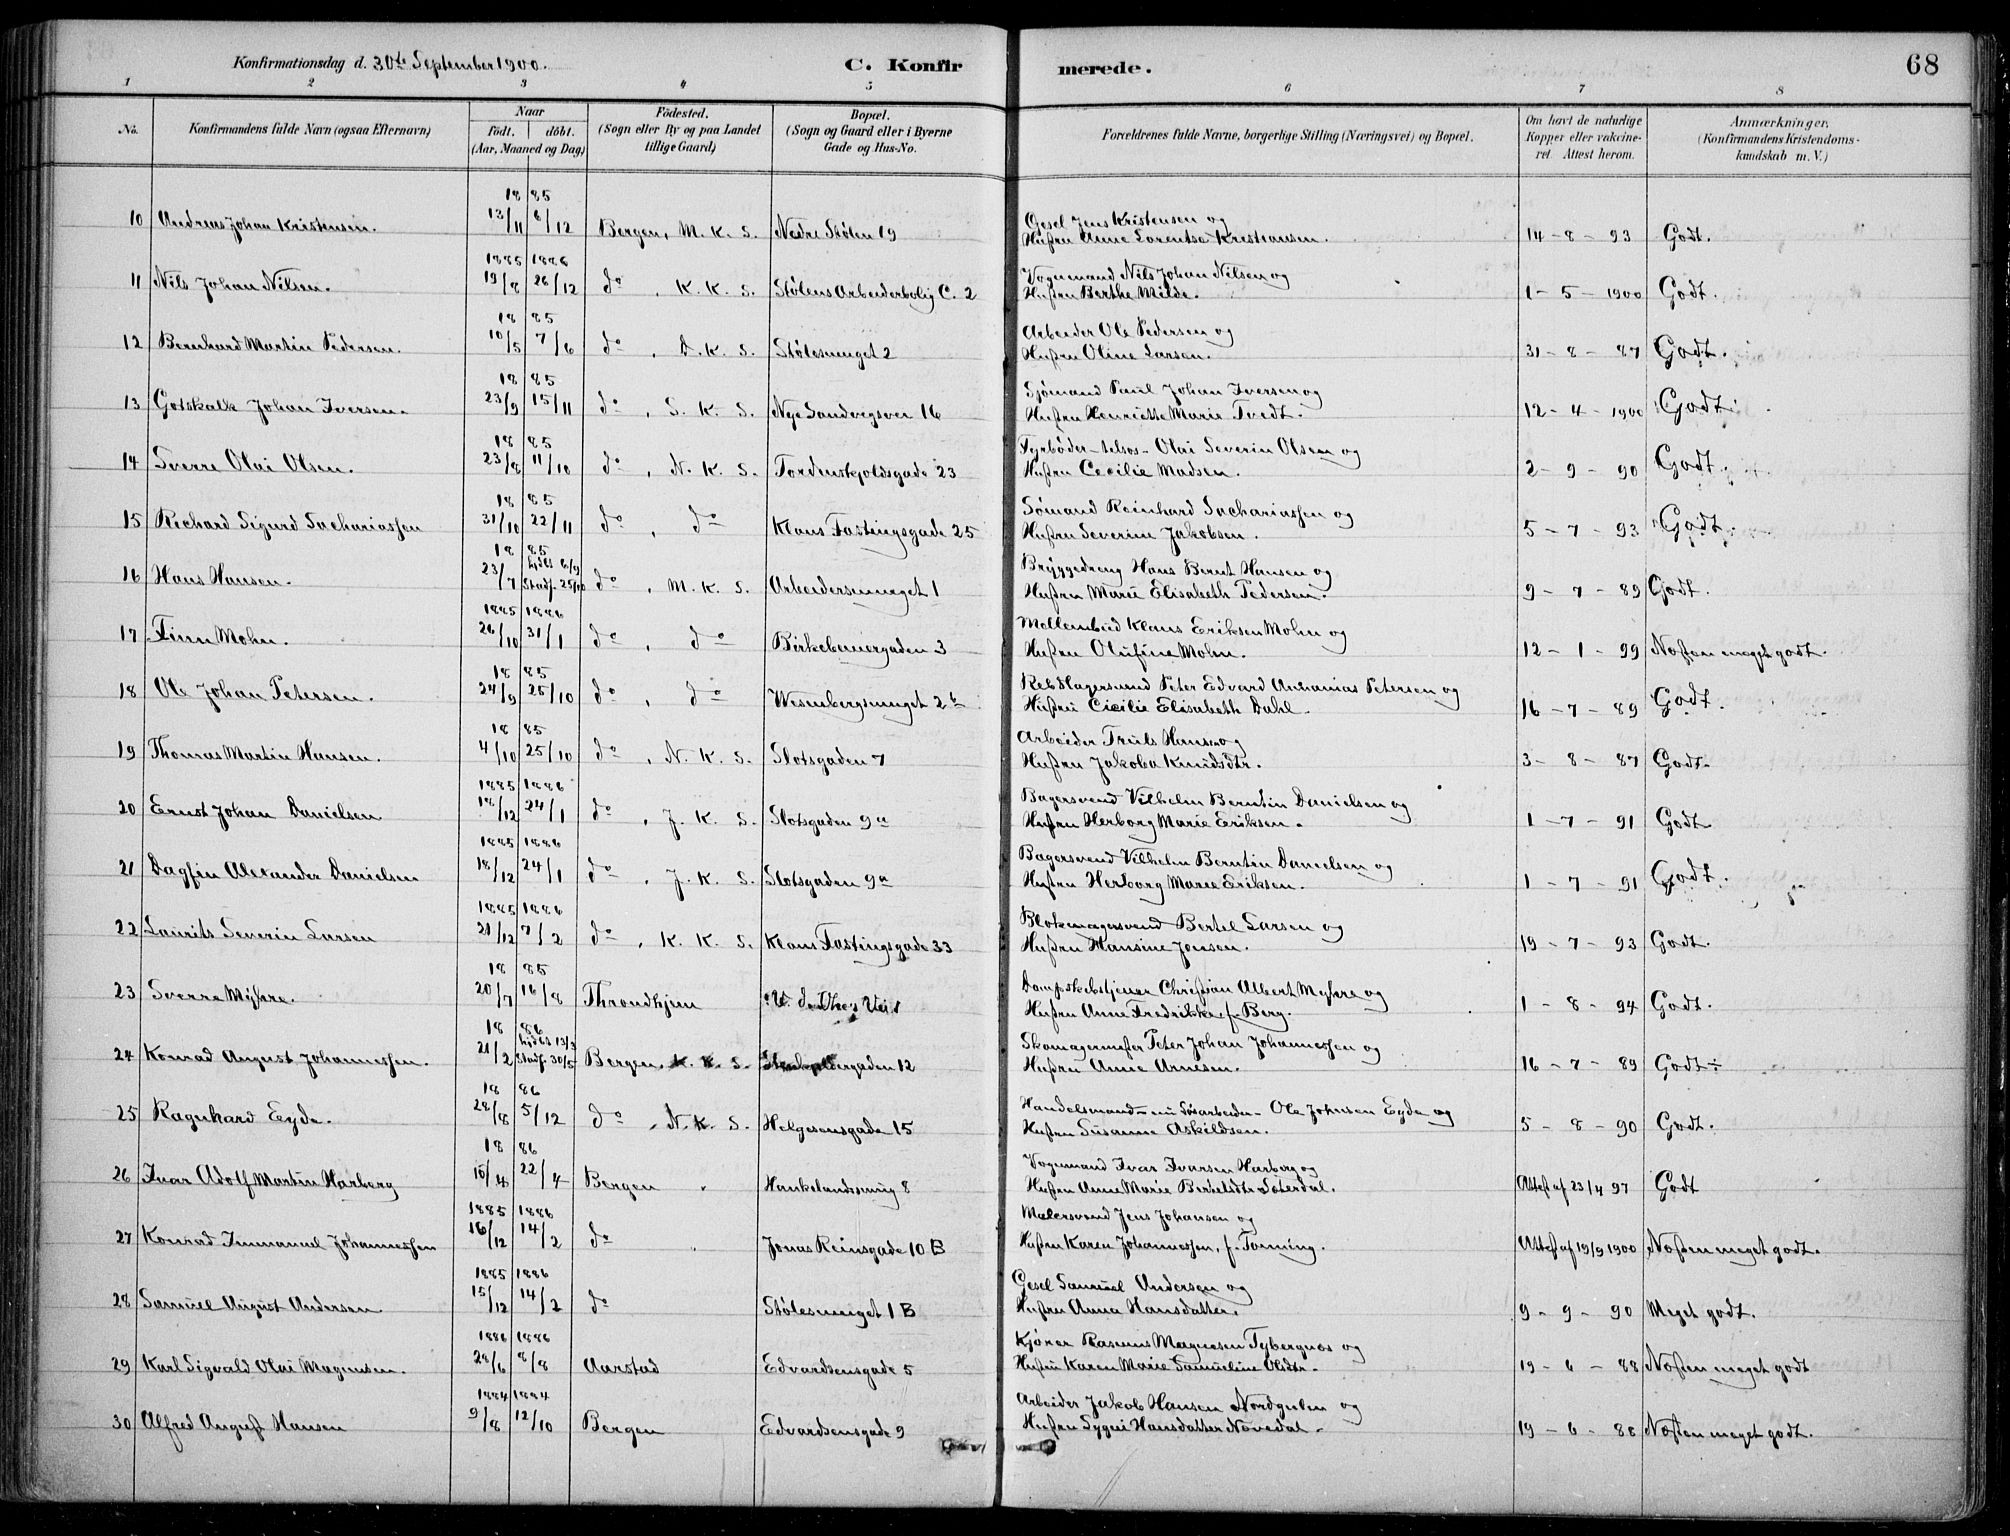 Konfirmationsdag d. 30te September 1900. C. Konfirmerede. 68
1 2 3 4 5 6 7 8
No. Konfirmandens fulde Navn (ogsaa Efternavn) Naar födt. döbt. (Aar, Maaned og Dag) Födested. (Sogn eller By og paa Landet tillige Gaard) Bopæl. (Sogn og Gaard eller i Byerne Gade og Hus-No. Forældrenes fulde Navne, borgerlige Stilling (Næringsvei) og Bopæl. Om havt de naturlige Kopper eller vakcineret. Attest herom. Anmærkninger, (Konfirmandens Kristendomskundskab m. V.)
18 85
10 Andreas Johan Kristensen. 13/11 6/12 Bergen, M. K. S. Nedre Stølen 19 Gesel Jens Kristensen og
Hustru Anne Lorentse Kristiansen. 14-8-93 Godt.
1885 1886
11 Nils Johan Nilsen. 19/8 26/12 do, K. K. S. Stølens Arbeiderbolig C. 2 Vognmand Nils Johan Nilsen og
Hustru Berthe Milde. 1-5-1900 Godt.
18 85
12 Bernhard Martin Pedersen. 10/5 7/6 do, D. K. S. Stølesmuget 2 Arbeider Ole Pedersen og
Hustru Oline Larsen. 31-8-87 Godt.
18 85
13 Gotskalk Johan Iversen. 23/9 15/11 do, S. K. S. Nye Sandvigsvei 16 Sjømand Paul Johan Iversen og
Hustru Henriette Marie Tvedt. 12-4-1900 Godt.
18 85
14 Sverre Olai Olsen. 23/8 11/10 do, N. K. S. Tordenskjoldsgade 23 Fyrbøder Olai Severin Olsen og
Hustru Cecilie Madsen. 2-9-90 Godt.
18 85
15 Richard Sigurd Sachariassen 31/10 22/11 do, do Klaus Fastingsgade 25 Sømand Reinhard Sachariassen og
Hustru Severine Jakobsen. 5-7-93 Godt.
18 85
16 Hans Hansen. 23/7 hjdbt 6/9 Stadf. 25/10 do, M. K. S. Arbeidersmuget 1 Bryggedreng Hans Bernt Hansen og
Hustru Marie Elisabeth Pedersen. 9-7-89 Godt.
1885 1886
17 Finn Mohn. 26/10 31/1 do, do Birkebeinergaden 3 Mellembud Klaus Eriksen Mohn og
Hustru Olufine Mohn. 12-1-99 Næsten meget godt.
18 85
18 Ole Johan Petersen. 24/9 25/10 do, do Wesenbergsmuget 2b Rebslagersvend Peter Edvard Ananias Petersen og
Hustru Cicilie Elisabeth Dahl. 16-7-89 Godt.
18 85
19 Thomas Martin Hansen. 4/10 25/10 do, N. K. S. Slotsgaden 7 Arbeider Truls Hansen og
Hustru Jakoba Knudsdtr. 3-8-87 Godt.
1885 1886
20 Ernst Johan Danielsen 18/12 24/1 do, J. K. S. Slotsgaden 9a Bagersvend Vilhelm Berntin Danielsen og
Hustru Herborg Marie Eriksen. 1-7-91 Godt
1885 1886
21 Dagfin Alexander Danielsen 18/12 24/1 do, J. K. S. Slotsgaden 9a Bagersvend Vilhelm Berntin Danielsen og
Hustru Herborg Marie Eriksen. 1-7-91 Godt.
1885 1886
22 Laurits Severin Larsen 21/12 7/2 do, K. K. S. Klaus Fastingsgade 33 Blokmagersvend Bertel Larsen og
Hustru Hansine Jensen. 19-7-93 Godt.
18 85
23 Sverre Myhre. 20/7 16/8 Throndhjem Dampskibstjener Christian Albert Myhre og
Hustru Anne Fredrikke, f. Berg. 1-8-94 Godt.
18 86
24 Konrad August Johannessen. 21/2 hjdbt 13/3 Stadf. 30/5 Bergen, K. K. S. 12 Skomagermester Peter Johan Johannessen og
Hustru Anne Arnesen. 16-7-89 Godt÷
18 86
25 Ragnhard Eyde. 28/8 5/12 do, N. K. S. Helgesensgade 15 Handelsmand - nu Løsarbeider - Ole Johnsen Eyde og
Hustru Susanne Askildsen. 5-8-90 Godt.
18 86
26 Ivar Adolf Martin Harberg 10/4 22/4 Bergen Haukelandssmug 8 Vognmand Ivar Ivarsen Harberg og
Hustru Anne Marie Bertelsdtr Sæterdal. Attest af 23/4 97 Godt
1885 1886
27 Konrad Immanuel Johannessen 16/12 14/2 do Jonas Reinsgade 10 B Malersvend Jens Johansen og
Hustru Karen Johannessen, f. Tonning. Attest af 19/9 1900 Næsten meget godt.
1885 1886
28 Samuel August Andersen 15/12 14/2 do Stølesmuget 1 B Gesel Samuel Andersen og
Hustru Anna Hansdatter. 9-9-90 Meget godt.
1886 1886
29 Karl Sigvald Olai Magnusen. 28/6 8/8 Aarstad Edvardsensgade 5 Kjører Rasmus Magnesen Tybergnes og
Hustru Karen Marie Samueline Olsdtr. 19-6-88 Næsten meget godt
1884 1884
30 Alfred August Hansen 9/8 12/10 Bergen Edvardsensgade 9 Arbeider Jakob Hansen Nordgulen og
Hustru Sygni Hansdatter Novedal. 19-6-88 Næsten meget godt.